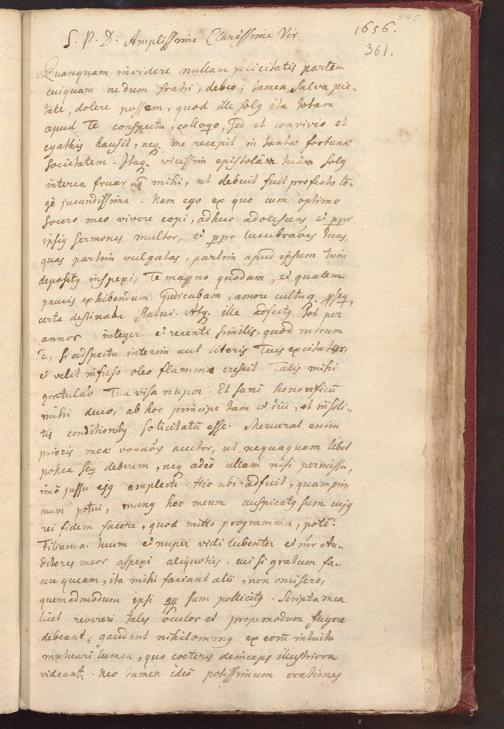 1656.
361.
S. P. D. Amplissime Clarissime Vir
Quanquam invidere nullam felicitatis partem
cuiquam nedum fratri, debeo; tamen salva pie-
tate, dolere possem, quod ille solq ita totam
apud Te conspectu, colloqo, sed et convivio et
cyathis hausit, neq me recepit in tantae fortunae
societatem. Itaq vicissim epistolâ tuâ solq
interea fruar, mihi, ut debuit fuit profecto lo-
gè jucundissima. Nam ego ex quo cum optimo
socero meo vivere coepi, adhuc adolescens et ppr
ipsiq sermones multos, et ppr lucubraões Tuas,
quas partim vulgatas, partim apud ipsum tum
depositas inspexi, Te magno quodam, et qualem
paucis exhibendum judicabam, amore cultuq
certa destinaõe statui. Atq ille adfectq tot per
annos integer et recenti similis, quod mirum
ẽ, si adspectu interim aut literis Tuis excitatus,
et velut infuso oleo flamma crescit. Talis mihi
gratulaõ Tua visa nuper. Et sanè honorificũ
mihi duco, ab hoc principe tam et diu, et insoli-
tis conditionibq solicitatũ esse. Meruerat enim
prioris meae vocaõis auctor, ut nequaquam libet
postea seq deberem, neq adeò ullam nisi permissu,
imò jussu ejq amplecti. Hic ubi adfuit, quamprim
num potui, munq hoc meum auspicatq sum cujq
rei fidem facere, quod mitto programma, potẽ.
Filium tuum et nuper vidi lubenter et inter Au-
ditores meos aspexi aliquoties. cui si gratum fa-
cere queam, ita mihi faciant alii, non omisero,
quemadmodum ipsi sum pollicitq. Scripta mea
licet revereri tales oculos et propemodum fugere
debeant, gaudent nihilominq ex eorũ intuitu
mutuari lumen, quo coeteris deinceps illustriora
videant. Nec tamen ideo potissimum orationes